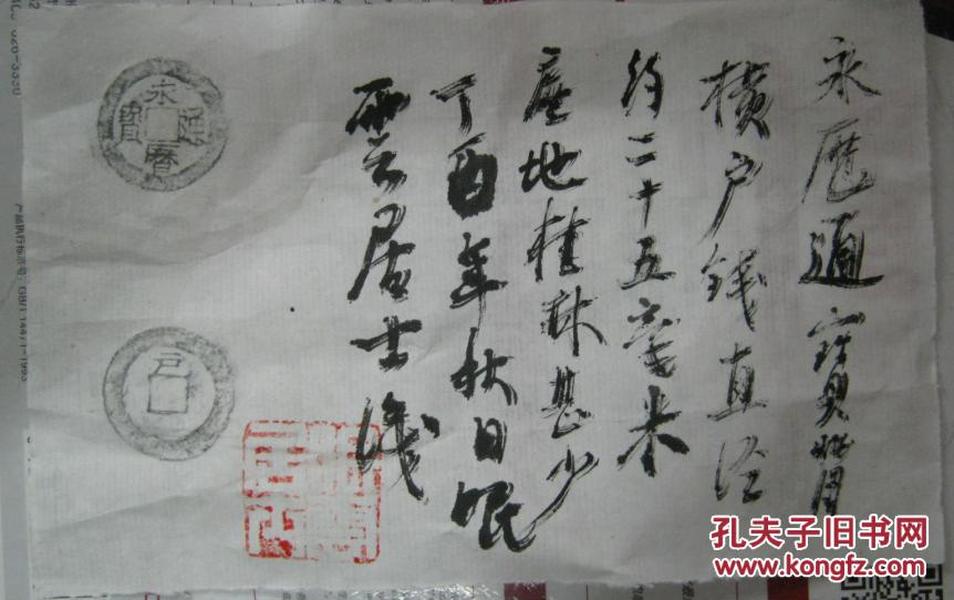 永歷通寶背
横户錢直径
约二十五毫米
產地桂林甚少
丁酉年秋日眠
雲居士識
永曆通寶
户
孔夫子旧书网
www.kongfz.com